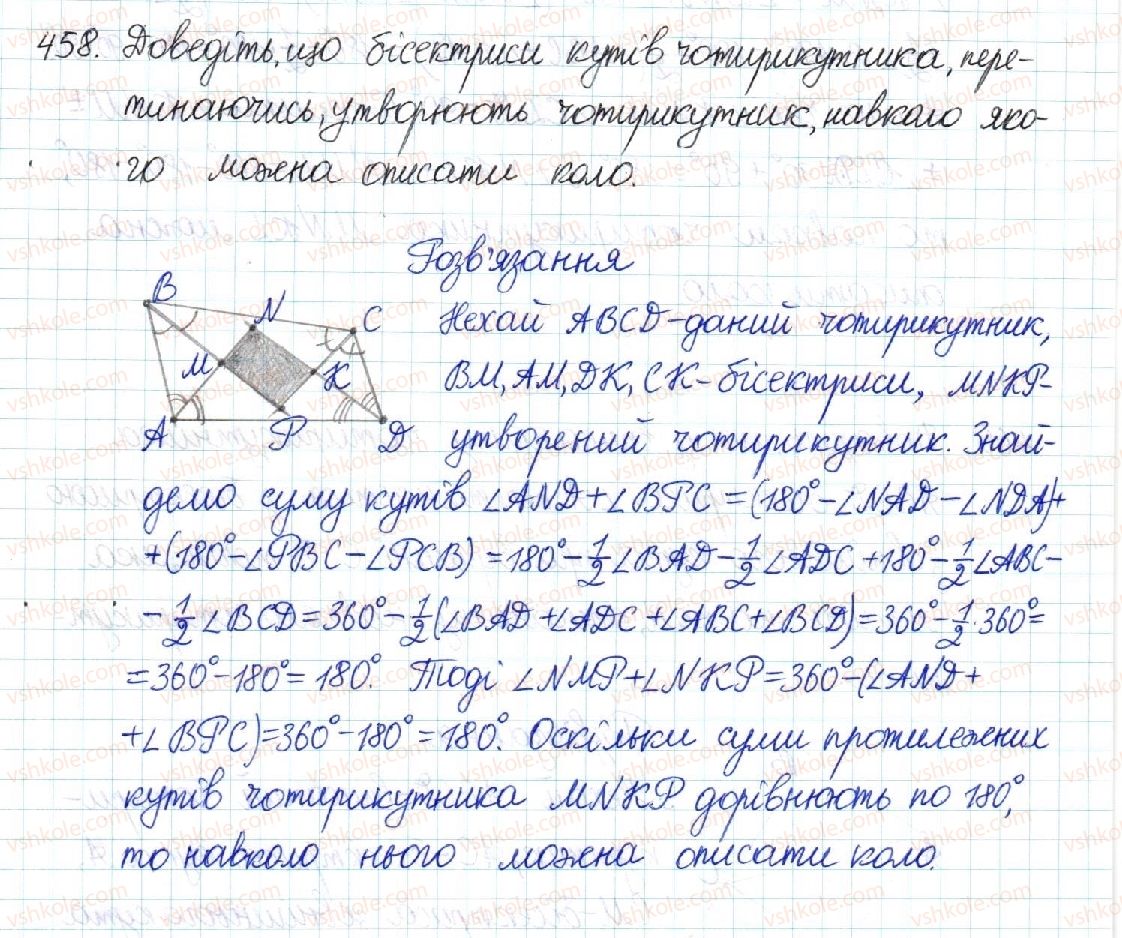 458. Доведіть, що бісектриси кутів чотирикутника, пере-
тинаючись, утворюють чотирикутник, навколо яко-
го можна описати коло.
Розв'язання
B N C
M K
A P D
Нехай ABCD-даний чотирикутник,
BM, AM, DK, CK-бісектриси, MNKP-
утворений чотирикутник. Знай-
демо суму кутів ∠AND+∠BPC=(180°-∠NAD-∠NDA)+
+(180°-∠PBC-∠PCB)=180°-1/2∠BAD-1/2∠ADC+180°-1/2∠ABC-
-1/2∠BCD=360°-1/2(∠BAD+∠ADC+∠ABC+∠BCD)=360°-1/2·360°=
=360°-180°=180°. Тоді ∠NMP+∠NKP=360°-(∠AND+
+∠BPC)=360°-180°=180°. Оскільки суми протилежних
кутів чотирикутника MNKP дорівнюють по 180°,
то навколо нього можна описати коло.
vshkole.com